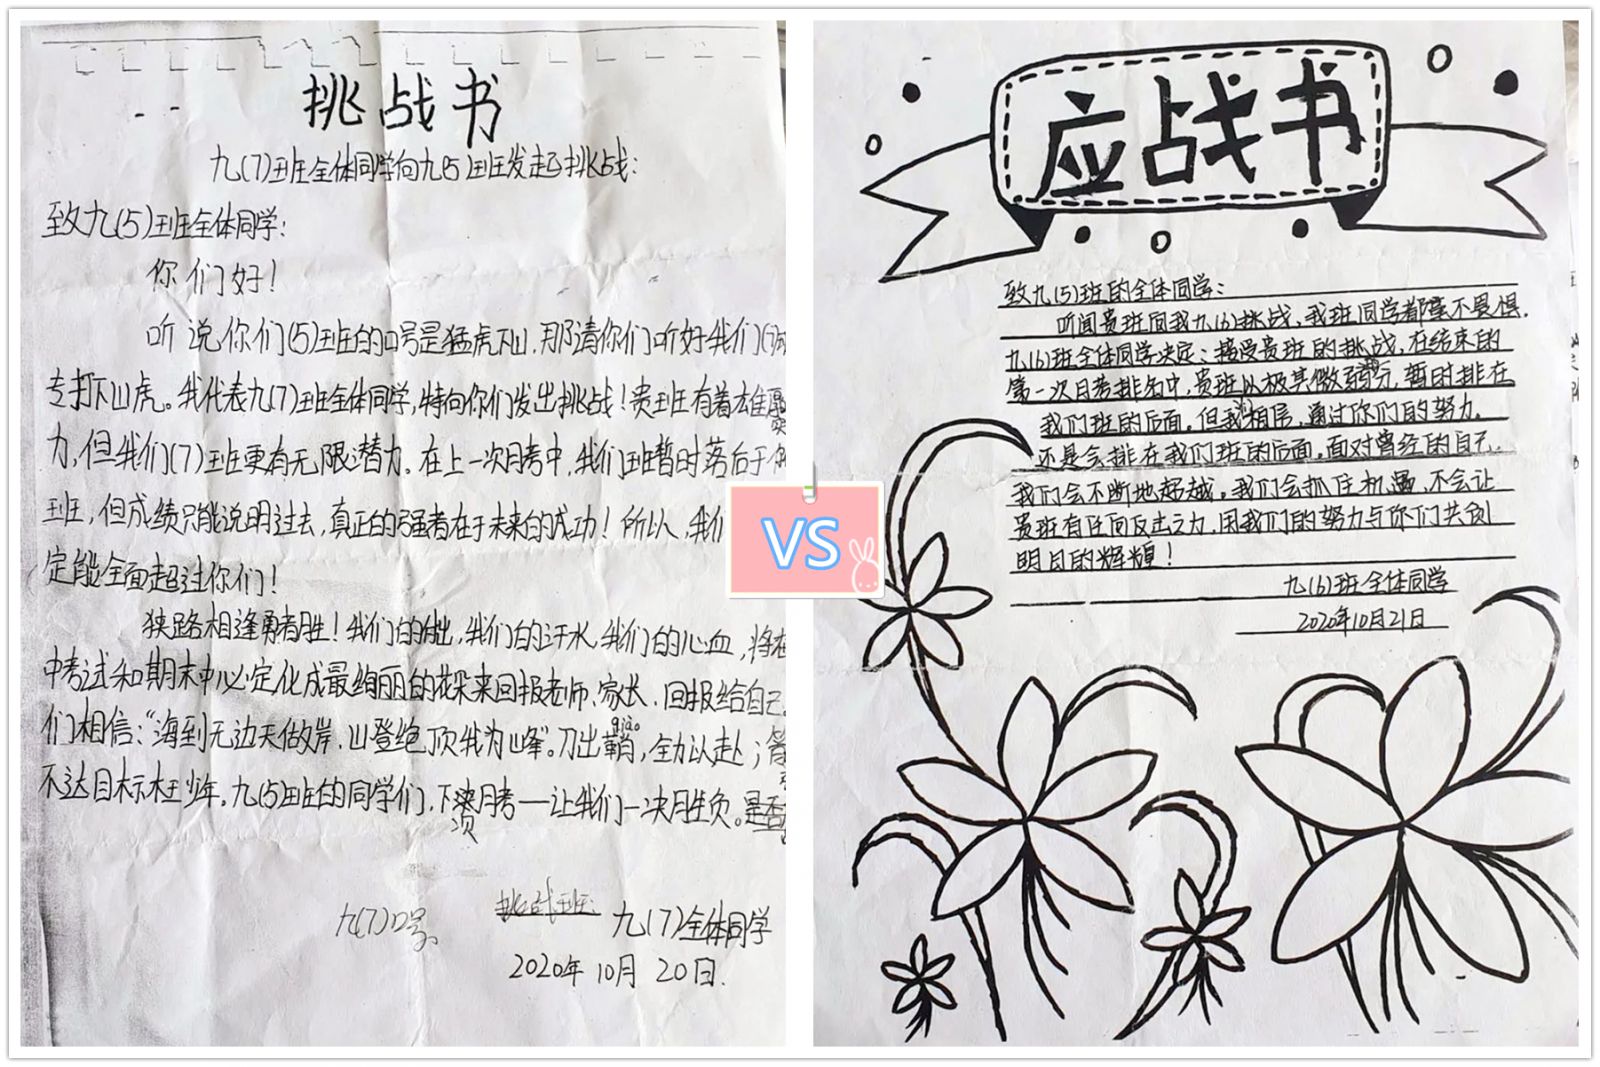 挑战书
九(7)班全体同学向九(5)班发起挑战:
致九(5)班全体同学:
你们好!
听说你们(5)班的口号是猛虎下山,那请你们听好我们(7)班
专打下山虎。我代表九(7)班全体同学,特向你们发出挑战!贵班有着雄厚
力,但我们(7)班更有无限潜力。在上一次月考中,我们班暂时落后于你
班,但成绩只能说明过去,真正的强者在于未来的成功!所以,我们
定能全面超过你们!
狭路相逢勇者胜!我们的付出,我们的汗水,我们的心血,将在
中考试和期末中必定化成最绚丽的花朵来回报老师、家长、回报给自己。
们相信:“海到无边天做岸,山登绝顶我为峰”。刀出鞘,全力以赴;
qiào
不达目标枉少年。九(5)班的同学们,下次月考——让我们一决胜负。是否
九(7)口号
挑战班:九(7)全体同学
2020年10月20日.
VS
应战书
致九(5)班的全体同学:
听闻贵班向我九(6)挑战,我班同学都毫不畏惧.
九(6)班全体同学决定:接受贵班的挑战,在结束的
第一次月考排名中,贵班以极其微弱分,暂时排在
我们班的后面。但我相信,通过你们的努力.
还是会排在我们班的后面。面对曾经的自己.
我们会不断地超越。我们会抓住机遇,不会让
贵班有任何反击之力,用我们的努力与你们共创
明日的辉煌!
九(6)班全体同学
2020年10月21日